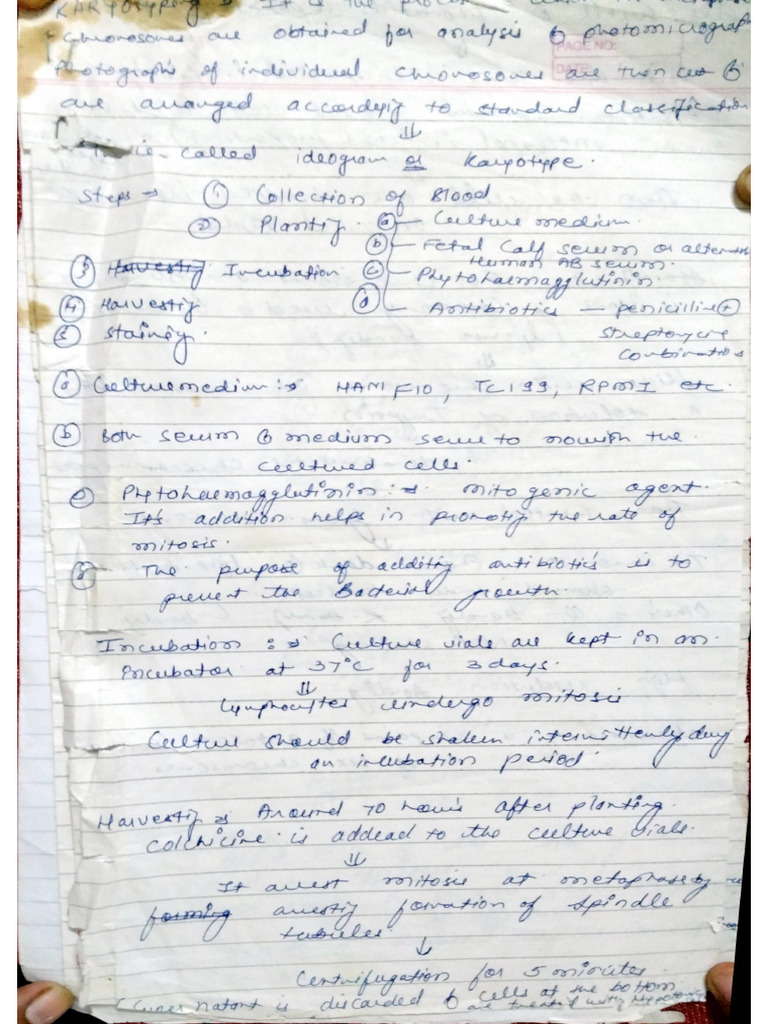 KARYOTYPING It is the process in
Chromosomes are obtained for analysis & photomicrograph
PAGE NO:
DATE:
Photographs of individual chromosomes are then cut &
are arranged according to standard classification
⇓
called ideogram or Karyotype.
Steps → ① Collection of Blood
② Planting ⓐ — Culture medium
ⓑ — Fetal Calf serum or
Human AB serum.
③ Harvesting Incubation ⓒ — Phytohaemagglutinin
④ Harvesting ⓓ — Antibiotics — penicilline +
⑤ Staining. Streptomycine
Combinations
ⓐ Culture medium :→ HAM F10, TC199, RPMI etc.
ⓑ Both serum & medium serve to nourish the
cultured cells.
ⓒ Phytohaemagglutinin :→ mitogenic agent.
It's addition helps in promoting the rate of
mitosis.
ⓓ The purpose of additing antibiotics is to
prevent the Bacterial growth.
Incubation :→ Culture vials are kept in an
incubator at 37°C for 3 days.
⇓
Lymphocytes undergo mitosis
Culture should be shaken intermittenly during
an incubation period.
Harvesting → Around 70 hours after planting
colchicine is addead to the culture vials.
⇓
It arrest mitosis at metaphase by
forming arresting formation of spindle
tubules
↓
Centrifugation for 5 minutes.
Supernatant is discarded & cells at the bottom
are treated with